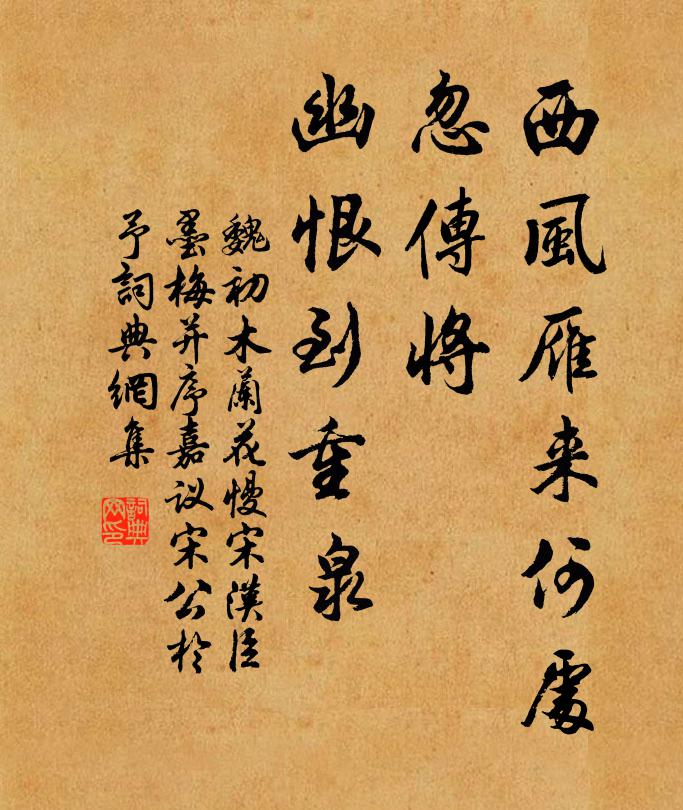 西風雁来何處
忽傳將
幽恨到重泉
魏初木蘭花慢宋漢臣
墨梅并序嘉议宋公於
予詞典網集
詞典网印